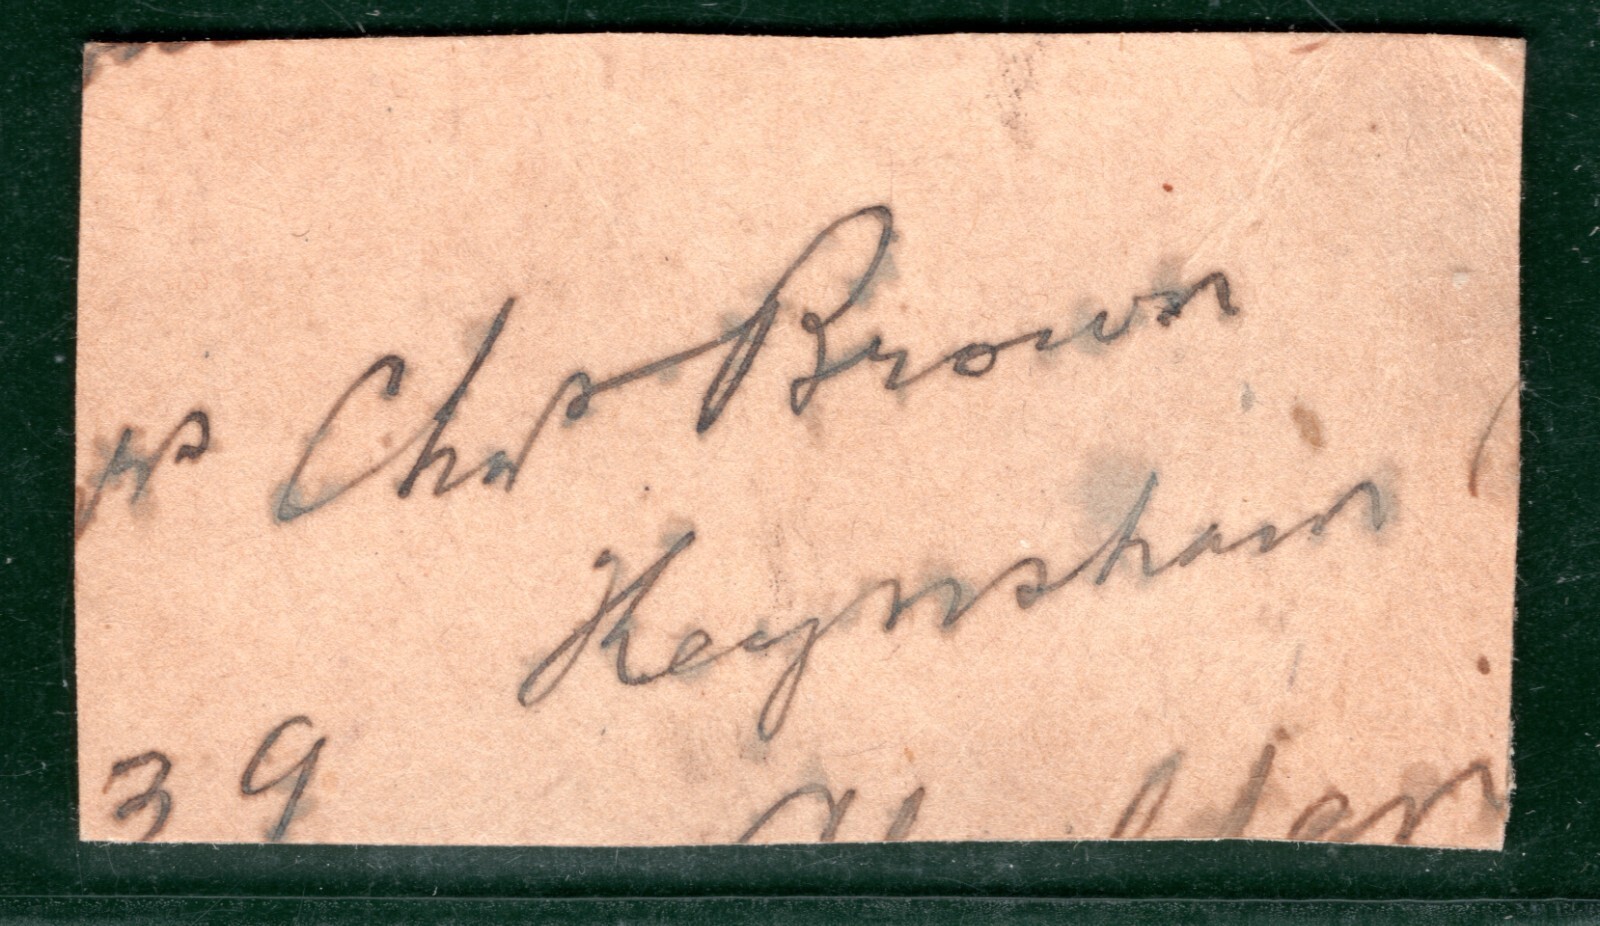 Chas Brown
Keynsham
39